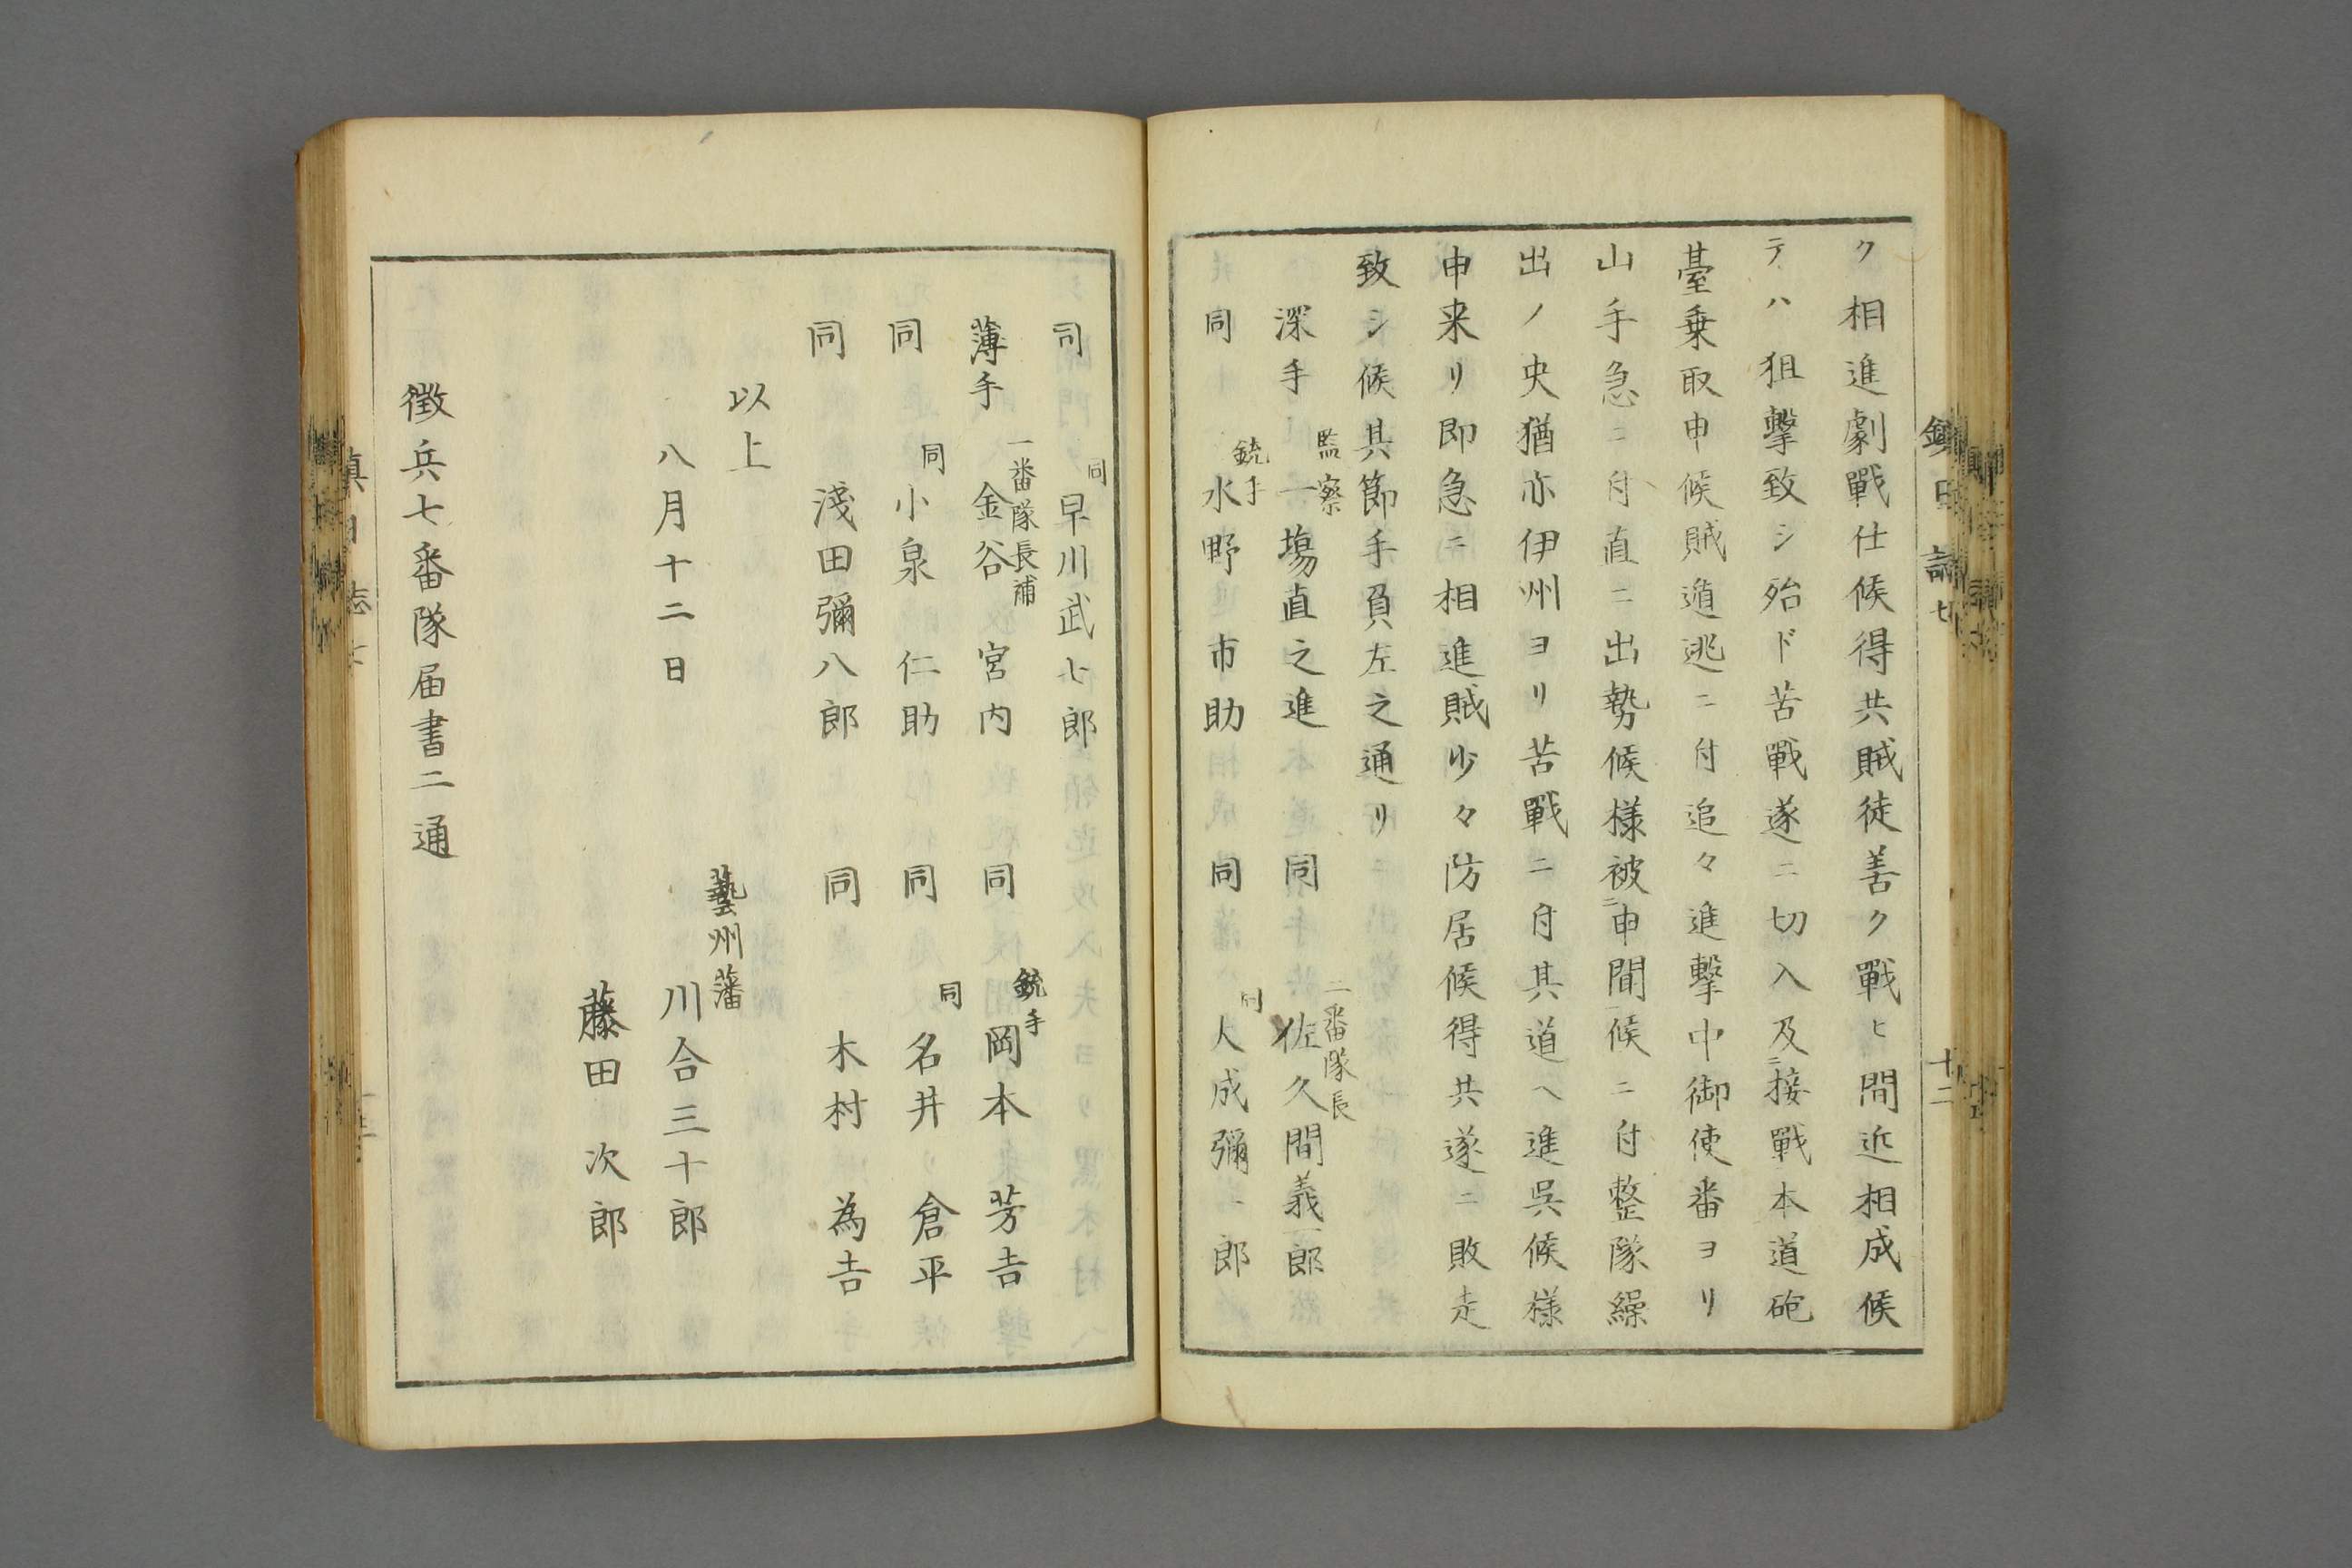 ク相進劇戰仕候得共賊徒善ク戰ヒ間近相成候
テハ狙擊致シ殆ド苦戰遂ニ切入及ニ接戰本道砲
臺乗取申候賊遁逃ニ付追々進擊中御使番ヨリ
山手急ニ付直ニ出勢候様被ニ申聞一候ニ付整隊繰
出ノ央猶亦伊州ヨリ苦戰ニ付其道ヘ進呉候様
申来リ即急ニ相進賊少々防居候得共遂ニ敗走
致シ候其節手負左之通リ
深手 監察 一塲直之進 同 二番隊長 佐久間義一郎
同 銃手 水野市助 同 同 大成彌一郎
同 同 早川武七郎
薄手 一番隊長補 金谷宮内 同 銃手 岡本芳吉
同 同 小泉仁助 同 同 名井倉平
同 淺田彌八郎 同 木村為吉
以上
八月十二日
藝州藩
川合三十郎
藤田次郎
徴兵七番隊届書二通